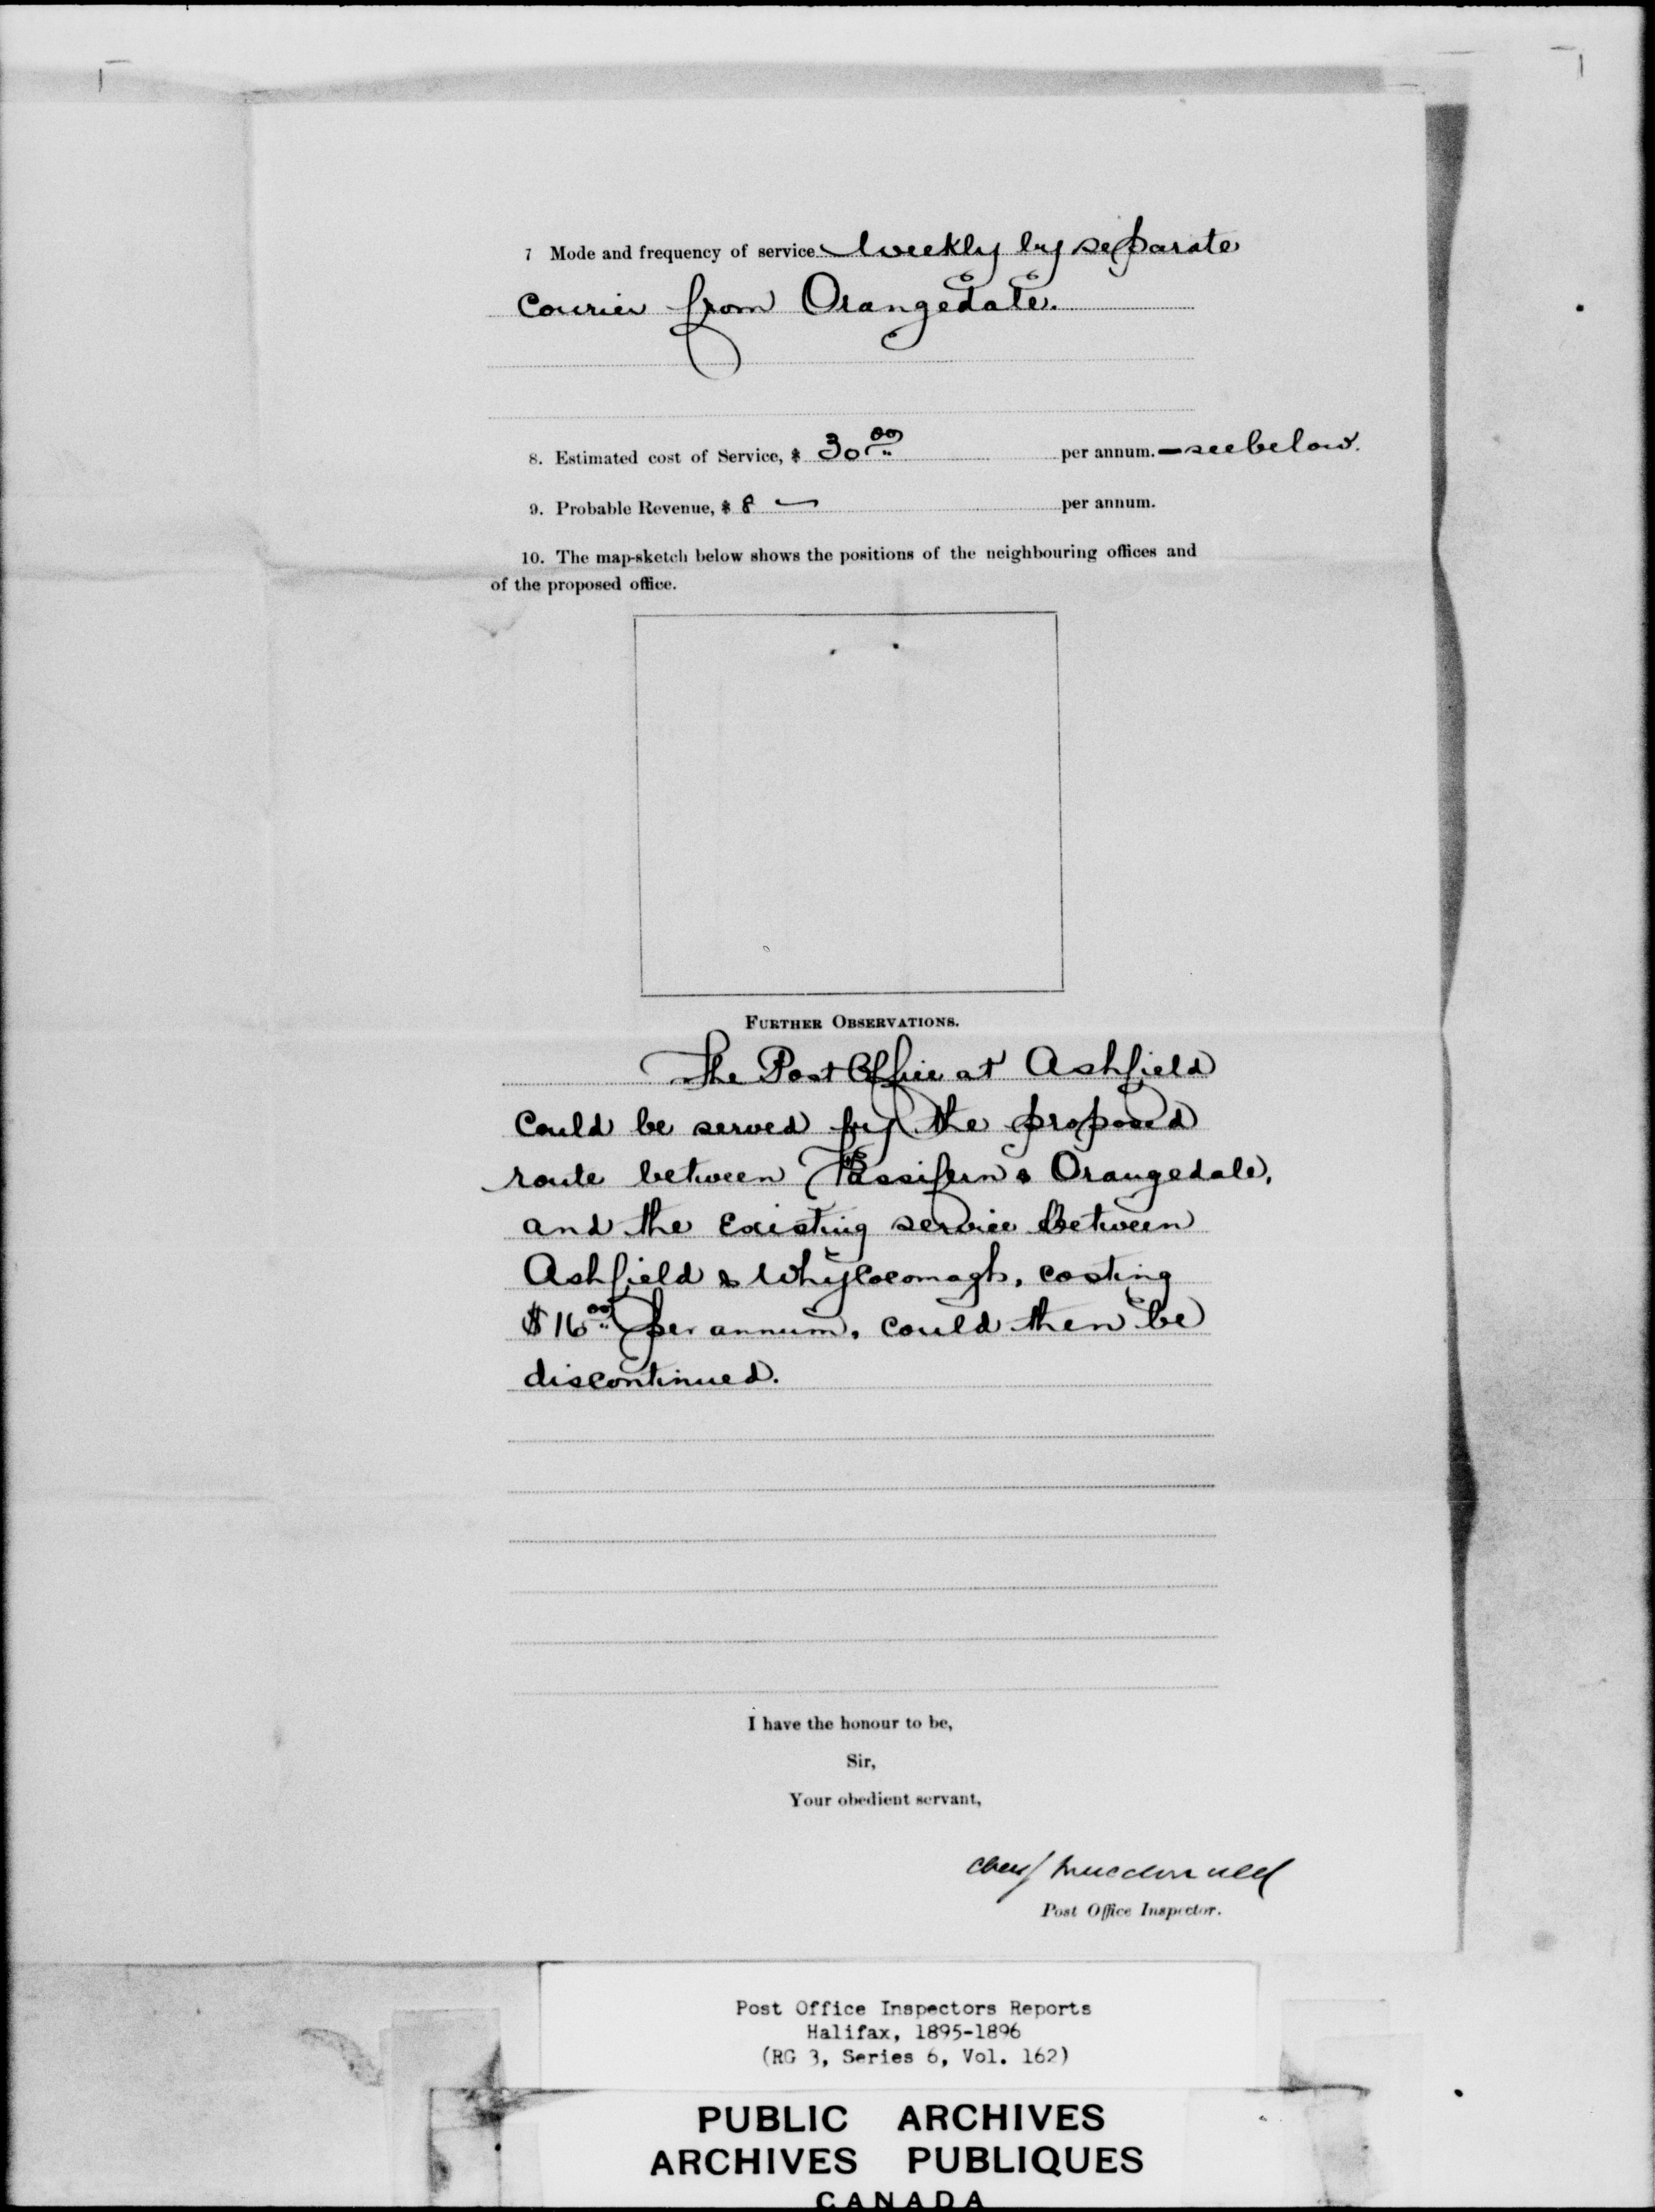 7 Mode and frequency of service Weekly by separate
Courier from Orangedale.
8. Estimated cost of Service, $ 30.00 per annum. - see below.
9. Probable Revenue, $ 8 — per annum.
10. The map-sketch below shows the positions of the neighbouring offices and
of the proposed office.
FURTHER OBSERVATIONS.
The Post Office at Ashfield
Could be served by the proposed
route between & Orangedale,
and the Existing service between
Ashfield & Whycocomagh, costing
$16.00 per annum, could then be
discontinued.
I have the honour to be,
Sir,
Your obedient servant,
Macdonald
Post Office Inspector.
Post Office Inspectors Reports
Halifax, 1895-1896
(RG 3, Series 6, Vol. 162)
PUBLIC ARCHIVES
ARCHIVES PUBLIQUES
CANADA